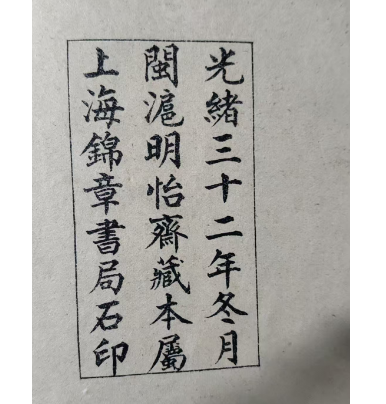 光緒三十二年冬月
閩滬明怡齋藏本屬
上海錦章書局石印